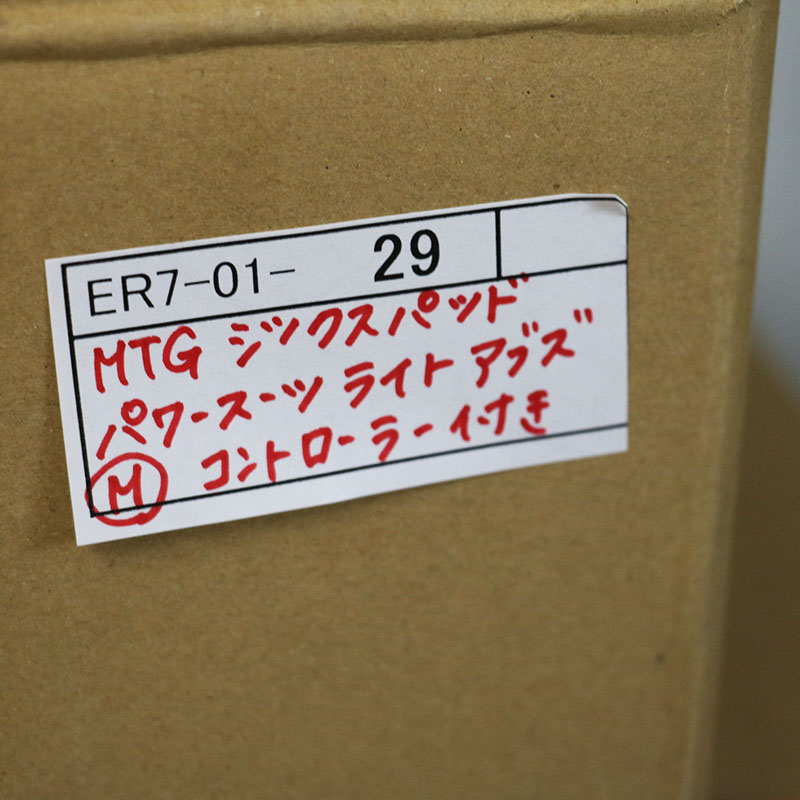 ER7-01- 29
MTG シックスパッド
パワースーツ ライト アブズ
Ⓜ コントローラー付き